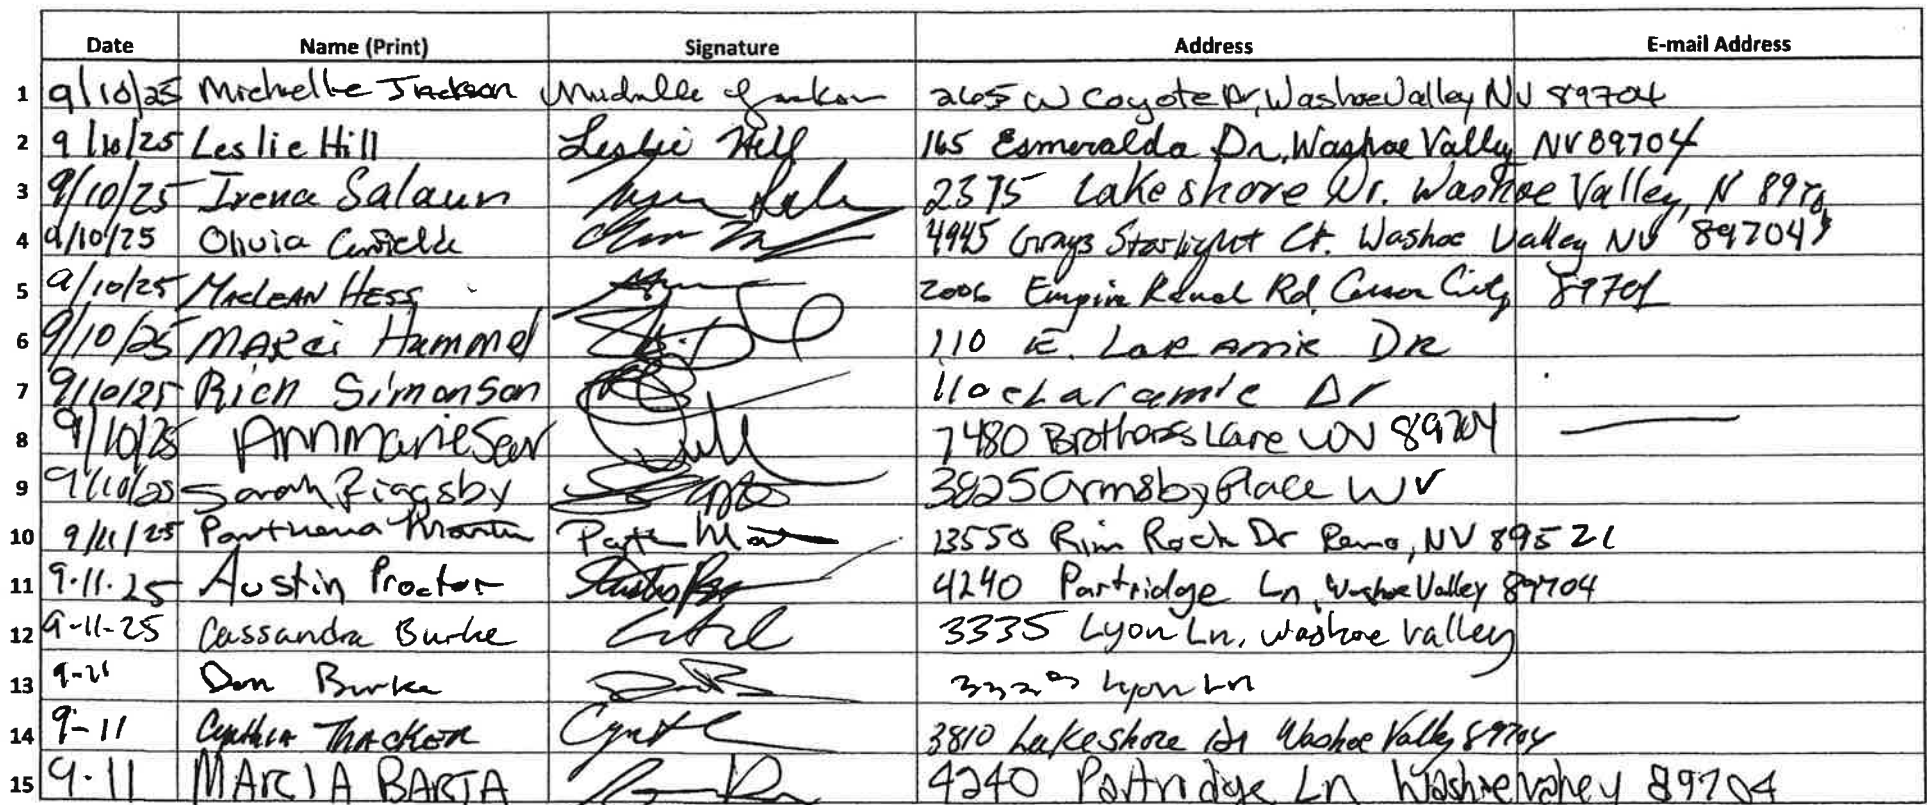 Date Name (Print) Signature Address E-mail Address
1 9/10/25 Michelle Jackson Michelle Jackson 2665 W Coyote Dr, Washoe Valley NV 89704
2 9/10/25 Leslie Hill Leslie Hill 165 Esmeralda Dr, Washoe Valley NV 89704
3 9/10/25 Irena Salaun 2375 Lakeshore Dr. Washoe Valley, N
4 9/10/25 Olivia 4945 Grays Starlight Ct. Washoe Valley NV 89704
5 9/10/25 MacLEAN HESS 2006 Empire Ranch Rd, Carson City 89701
6 9/10/25 MARCi Hammel 110 E. LARAmie DR
7 9/10/25 Rich Simonson 110 e Laramie Dr
8 9/10/25 AnnMarie 7480 Brothers Lane WV 89704
9 9/10/25 Sarah 3825 Ormsby Place WV
10 9/11/25 Parthena Martin 13550 Rim Rock Dr Reno, NV 89521
11 9-11-25 Austin Proctor 4240 Partridge Ln, Washoe Valley 89704
12 9-11-25 Cassandra Burke 3335 Lyon Ln, Washoe Valley
13 9-11 Don Burke Lyon Ln
14 9-11 Cynthia THACKER 3810 Lakeshore Dr Washoe Valley 89704
15 9-11 MARCIA BARTA 4240 Partridge Ln Washoe Valley 89704